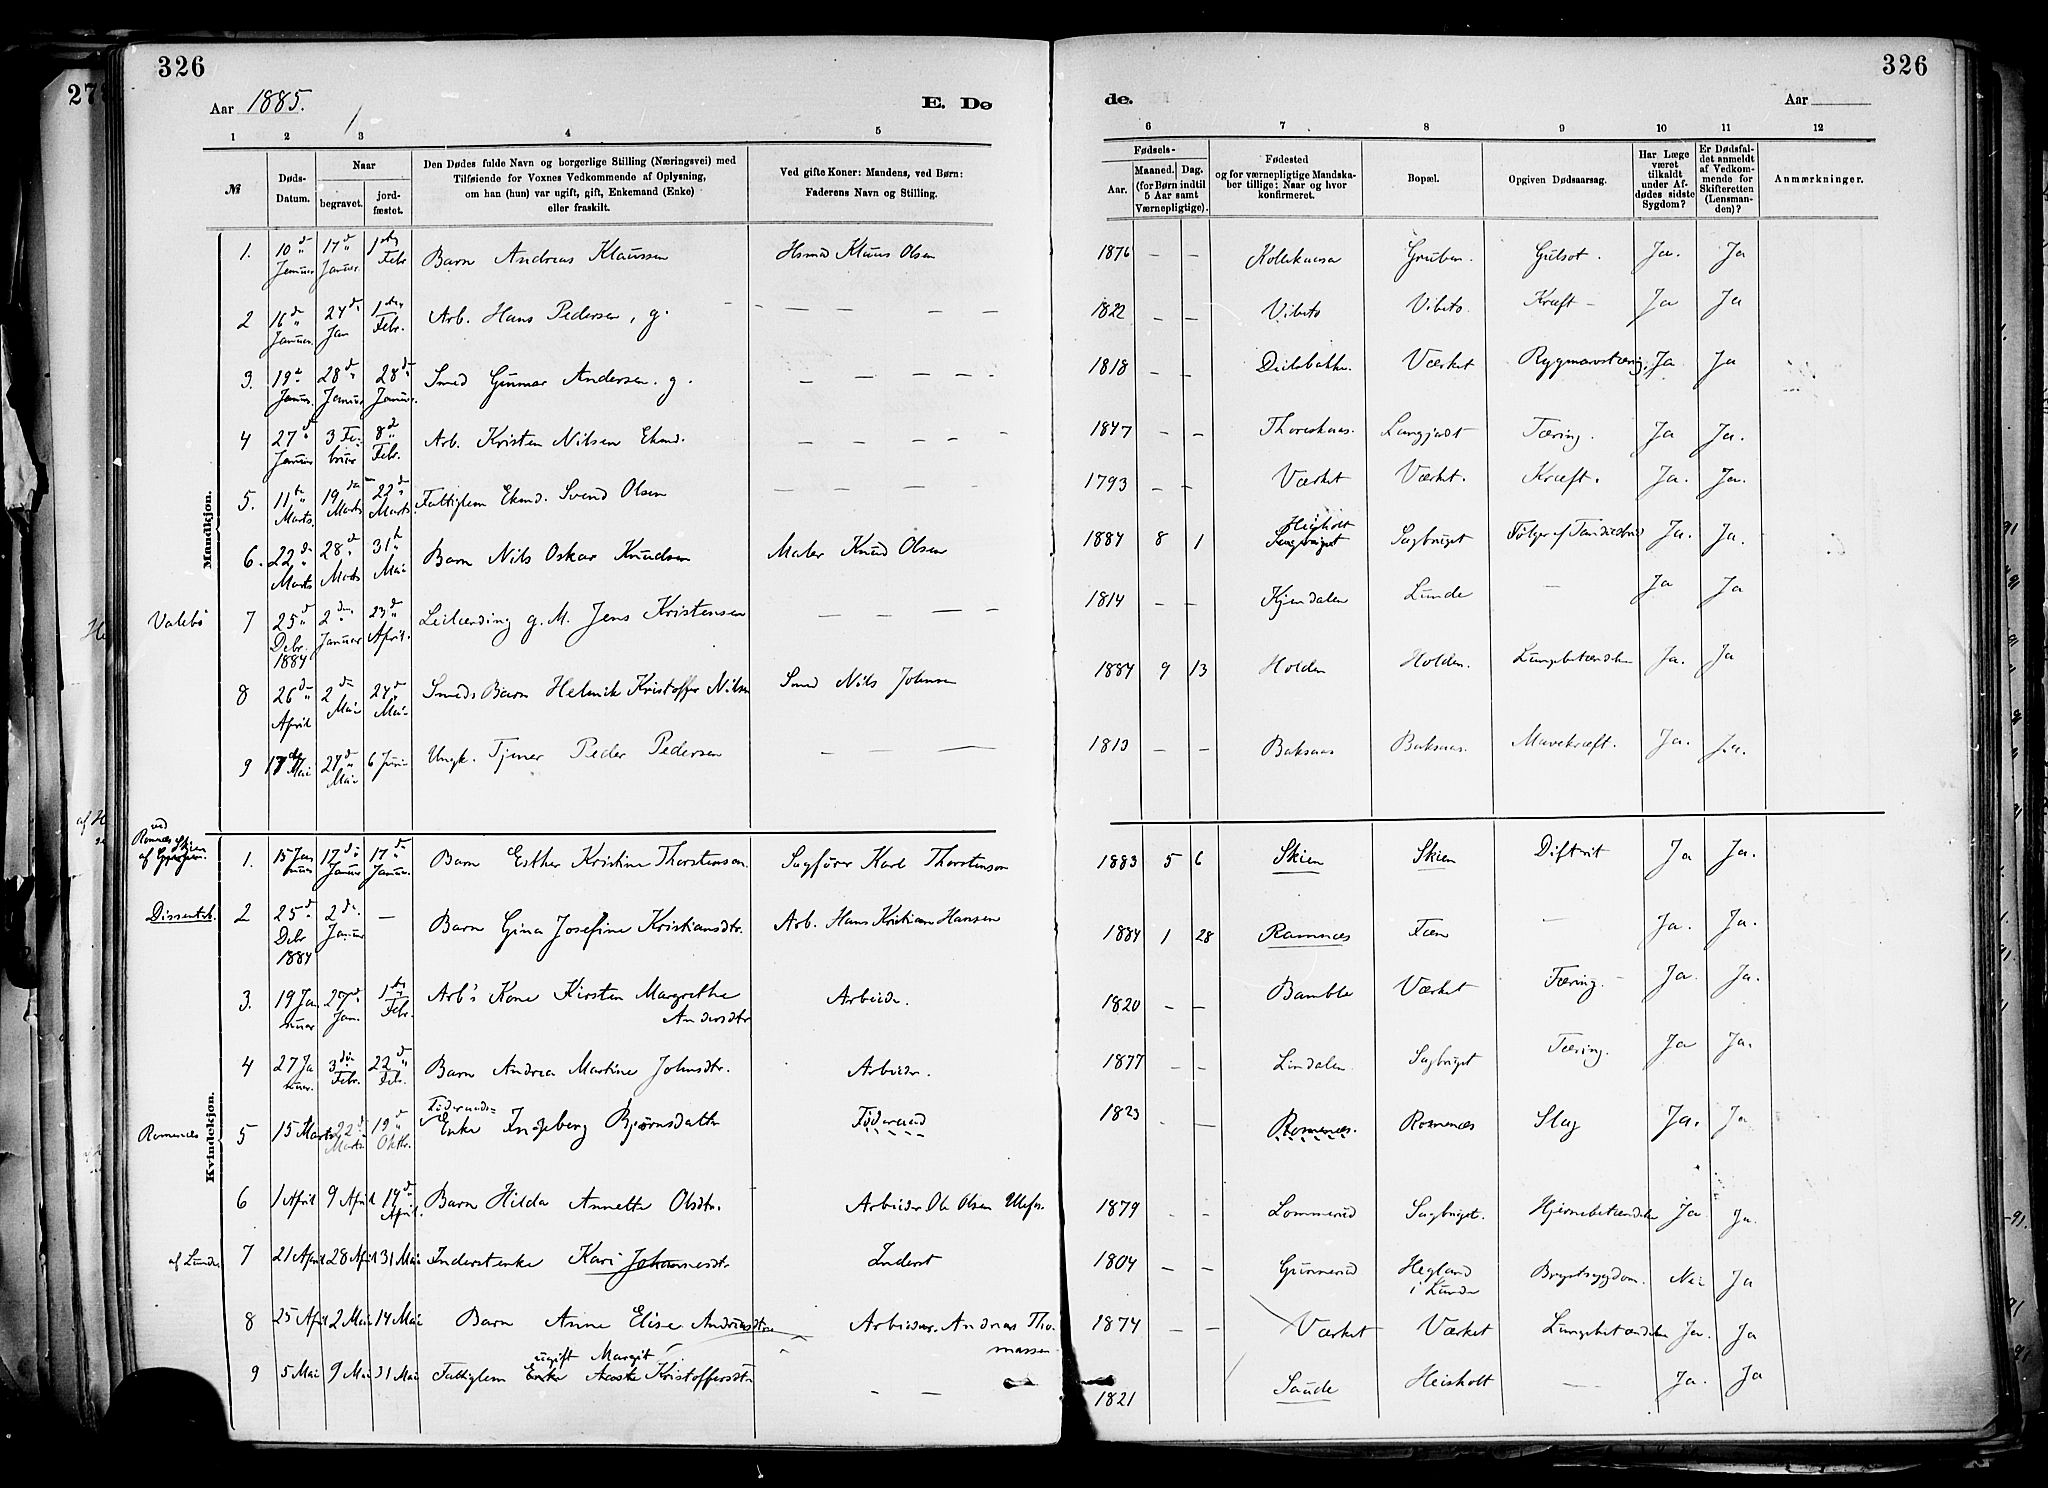 326
326
Aar 1885.
E. Dø
de.
Aar
1 2 3 4 5 6 7 8 9 10 11 12
№
Døds-Datum.
Naar
begravet.
jordfæstet.
Den Dødes fulde Navn og borgerlige Stilling (Næringsvei) med
Tilføiende for Voxnes Vedkommende af Oplysning,
om han (hun) var ugift, gift, Enkemand (Enke)
eller fraskilt.
Ved gifte Koner: Mandens, ved Børn:
Faderens Navn og Stilling.
Fødsels-
Aar.
Maaned. Dag.
(for Børn indtil
5 Aar samt
Værnepligtige).
Fødested
og for værnepligtige Mandska-
ber tillige: Naar og hvor
konfirmeret.
Bopæl.
Opgiven Dødsaarsag.
Har Læge
været
tilkaldt
under Af-
dødes sidste
Sygdom?
Er Dødsfal-
det anmeldt
af Vedkom-
mende for
Skifteretten
(Lensman-
den)?
Anmærkninger.
Mandkjøn.
1. 10de Januar 17de Januar 1ste Febr Barn Andreas Klaussen Klaus Olsen 1876 — — Gruben. Gulsot. Ja. Ja
2 16de Januar 24de Jan 1ste Febr. Arb. Hans Pedersen, g. — — — — 1822 — — Vibeto Vibeto. Kræft — Ja Ja
3. 19de Januar. 28de Januar 28de Januar. Smed Gunnar Andersen. g. — — — — — 1818 — — Værket Rygmarvstæring. Ja Ja
4 27de Januar 3 Februar 8de Febr. Arb. Kristen Nilsen Ekmd. — — — — 1847 — — Tæring. Ja Ja.
5. 11te Marts. 19de Marts 22de Marts. Fattiglem Ekmd. Svend Olsen — — — — 1793 — — Værket Værket. Kræft. Ja. Ja.
6. 22de Marts 28de Marts 31te Mai Barn Nils Oskar Knudsen Maler Knud Olsen 1884 8 1 Sagbruget Ja. Ja.
Valebø 7 25de Debr. 1884 2den Januar 23de April. Leilænding g. M. Jens Kristensen — — — 1814 — — Kjendalen Lunde — Ja Ja
8 26de April 2den Mai 24de Mai Smeds Barn Helmik Kristoffer Nilsen Smed Nils Johnsen 1884 9 13 Holden Holden. Lungebetændelse Ja. Ja
9 17de Mai 27de Mai 6 Juni Ungk. Tjener Peder Pedersen — — — 1813 — — Baksaas Baksaas. Mavekræft. Ja. Ja.
Kvindekjøn.
ved Romnæs Skien
1. 15 Januar 17de Januar 17de Januar. Barn Esther Kristine Thorstenson. Sagfører Karl Thorstenson 1883 5 6 Skien Skien Diftrit Ja Ja.
Dissentrb. 2 25de Debr 1884 2de. Januar — Barn Gina Josefine Kristiansdtr. Arb. Hans Kristian Hansen 1884 1 28 Romnæs Fæen — Ja. Ja.
3. 19 Januar 27de Jan. 1ste Febr. Arb's Kone Kirsten Margrethe Andersdtr Arbeider. 1820 — — Bamble Værket Tæring. — Ja. Ja.
4 27 Januar. 3die Febr. 22de Febr. Barn Andrea Martine Johnsdtr. Arbeider. 1877 — — Lindalen Sagbruget Tæring. Ja Ja.
Romnæs 5 15 Marts 22de Marts 19de Oktbr. Føderaads-Enke Ingeborg Bjørnsdatter Føderaad 1823 — — Romnæs. Romnæs Slag Ja. Ja
6 1 April 9 April 19de April. Barn Hilda Annette Olsdtr. Arbeider Ole Olsen Ulefos. 1879 — — Lommerud Sagbruget. Hjernebetændelse Ja. Ja.
af Lunde. 7 21 April 28 April 31 Mai Inderstenke Kari Johannesdtr. Inderst 1804 — — Gunnerud Hegland i Lunde Brystsygdom. Nei Ja
8 25 April 2 Mai 14 Mai Barn Anne Elise Andreasdtr. Arbeider. Andreas Thomassen 1874 — — Værket Værket Lungebetændelse Ja. Ja
9 5 Mai 9 Mai 31 Mai Fattiglem Enke ugift Margit Kristoffersdtr — — 1821 Saude Heisholt — Ja. Ja